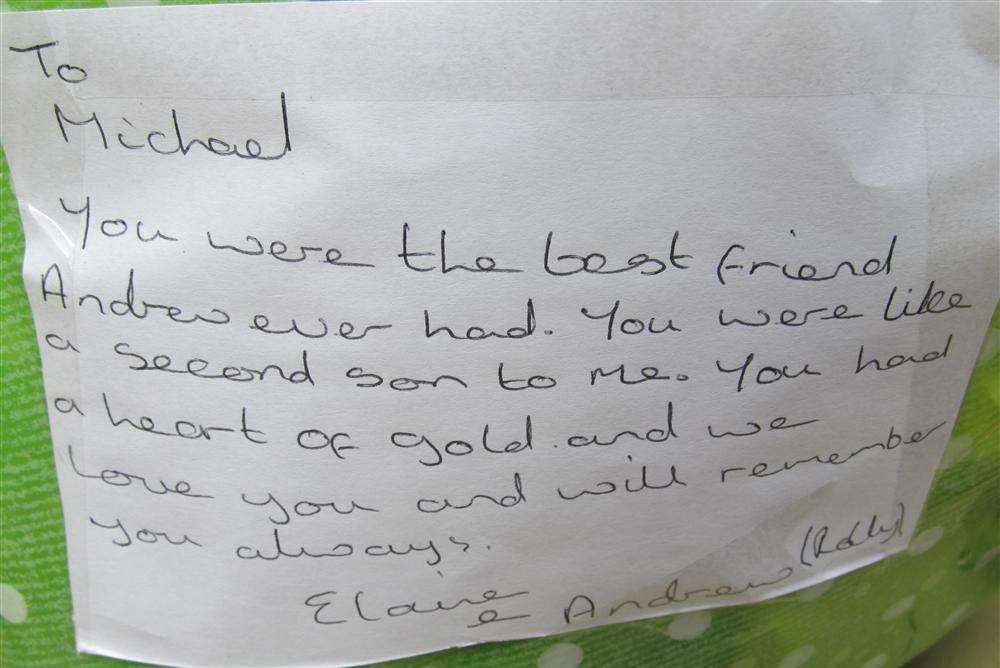 To
Michael
You were the best friend
Andrew ever had. You were like
a second son to me. You had
a heart of gold and we
love you and will remember
you always.
Elaine
e Andrew